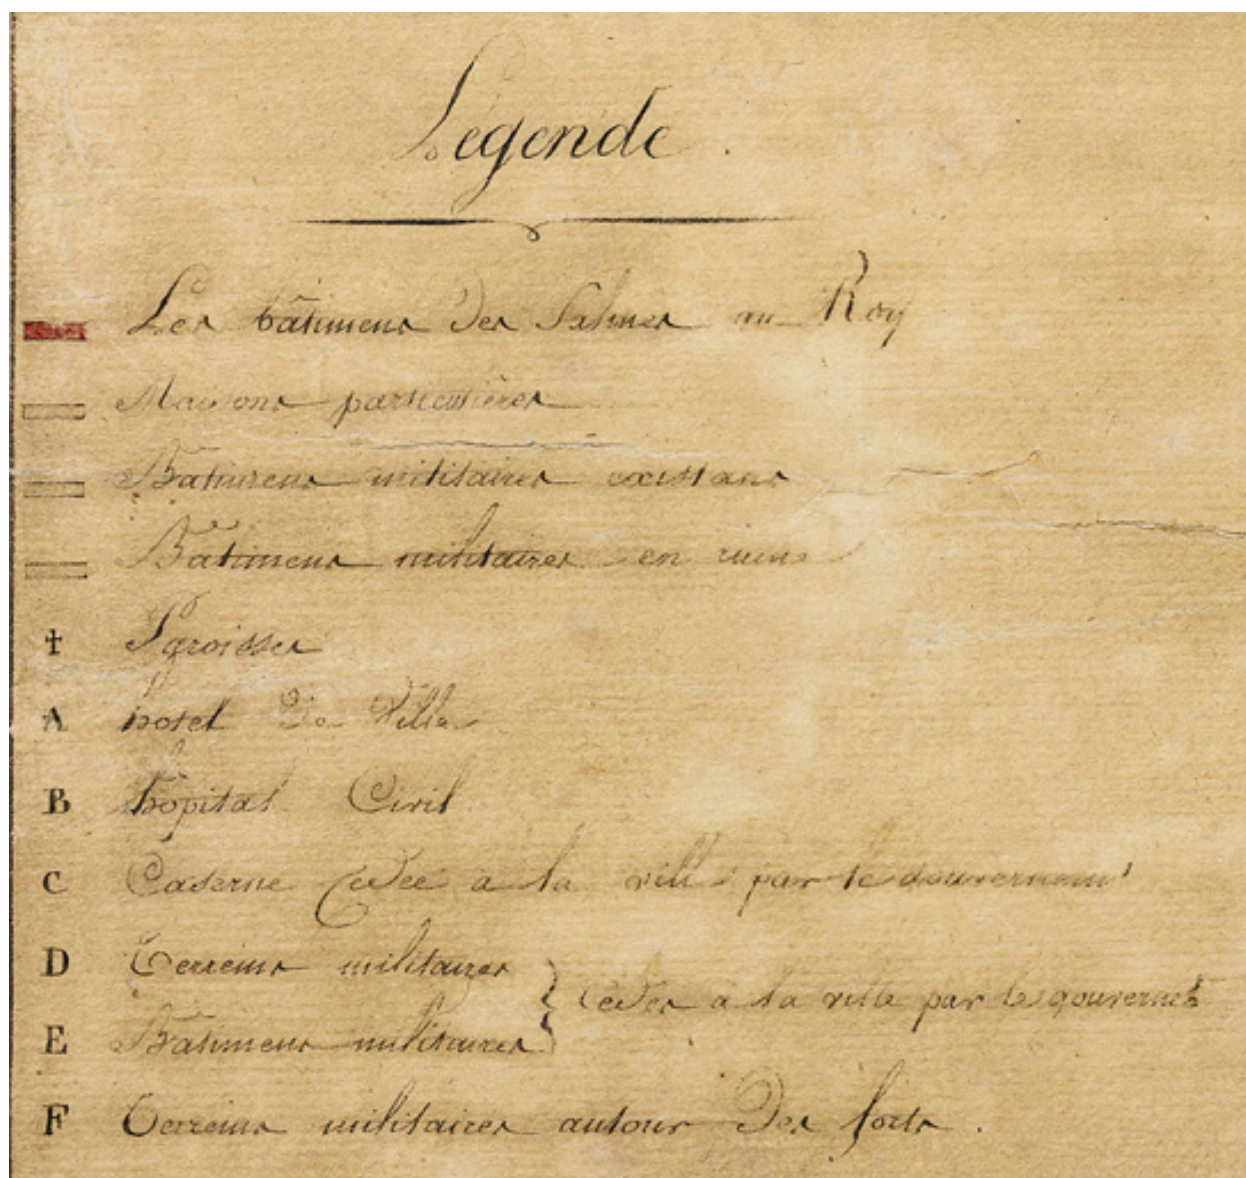 Légende.
Les bâtimens des Salines au Roy
Maisons particulières
Batimens militaires existans
Batimens militaires en ruine
† Paroisses
A hotel de Ville
B hôpital Civil
C Caserne Cedée a la ville par le Gouvernemt
D Terreins militaires
Cedes a la ville par le gouvernet
E Batimens militaires
F Terreins militaires autour des forts.